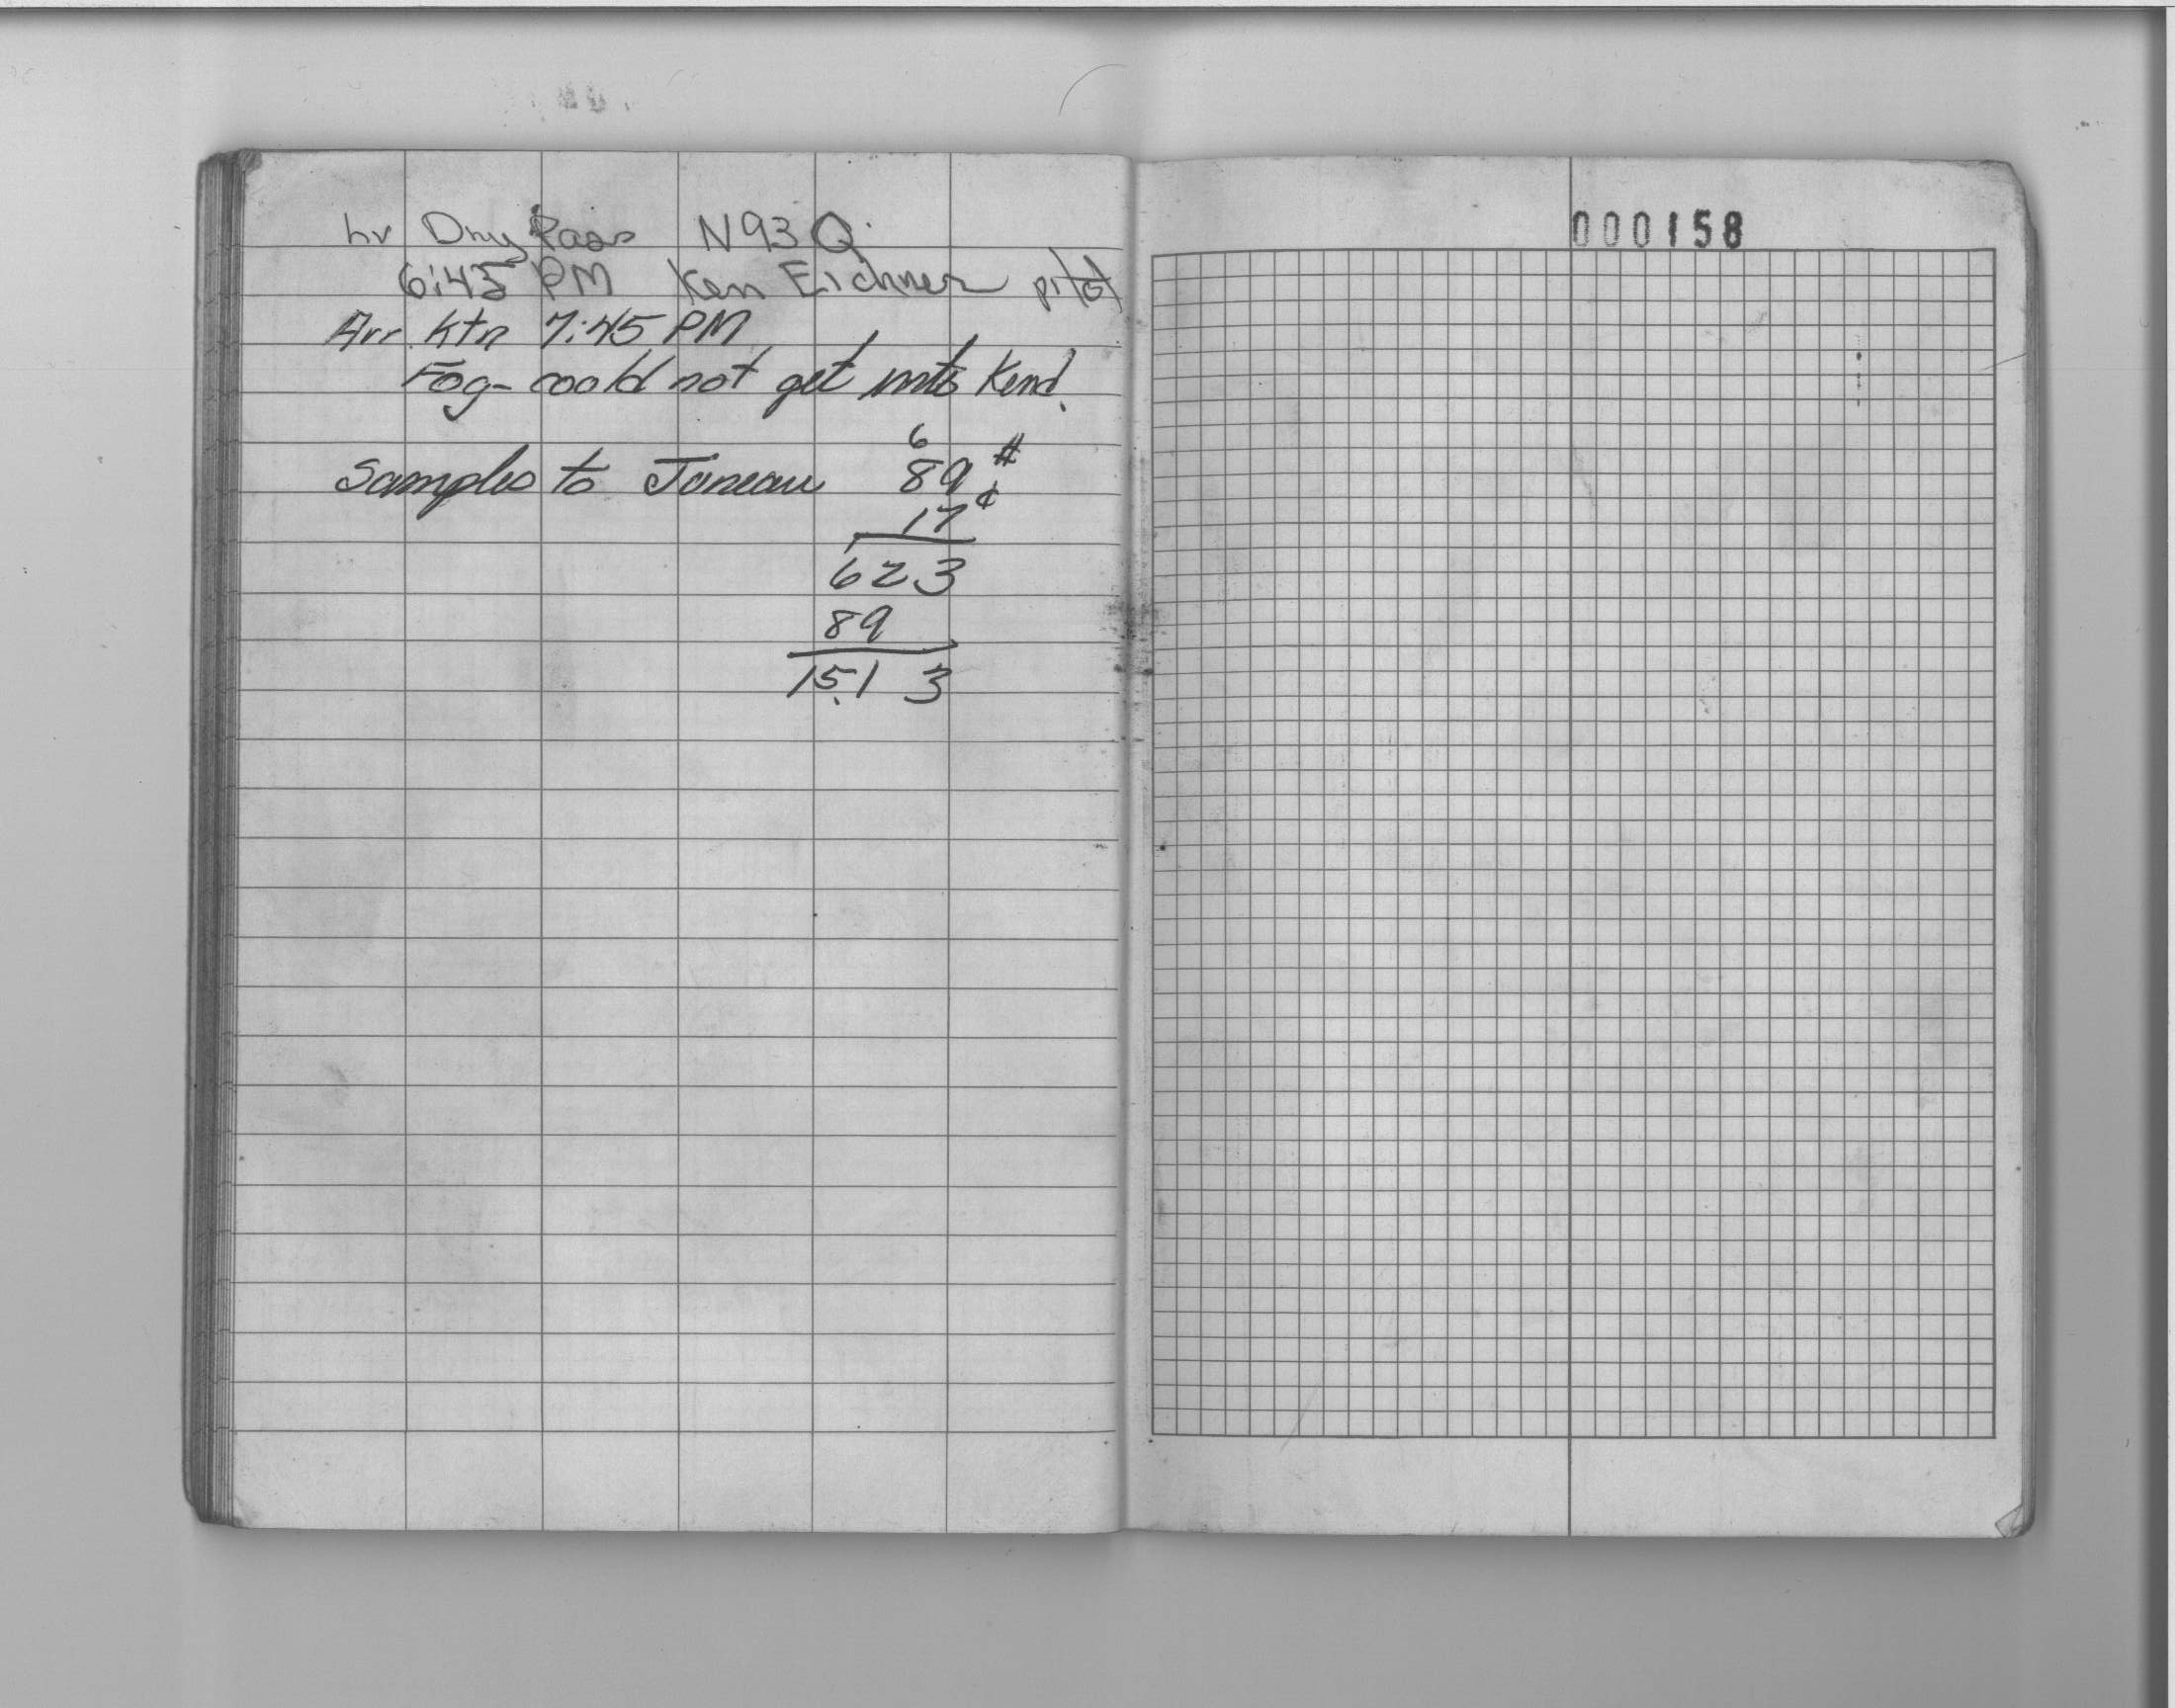 Lv Dry Pass N93Q
6:45 PM Ken Eichner pilot
Arr. Ktn 7:45 PM
Fog - could not get into Kend.
6
Samples to Juneau 89 #
17 ¢
623
89
15.13
000158